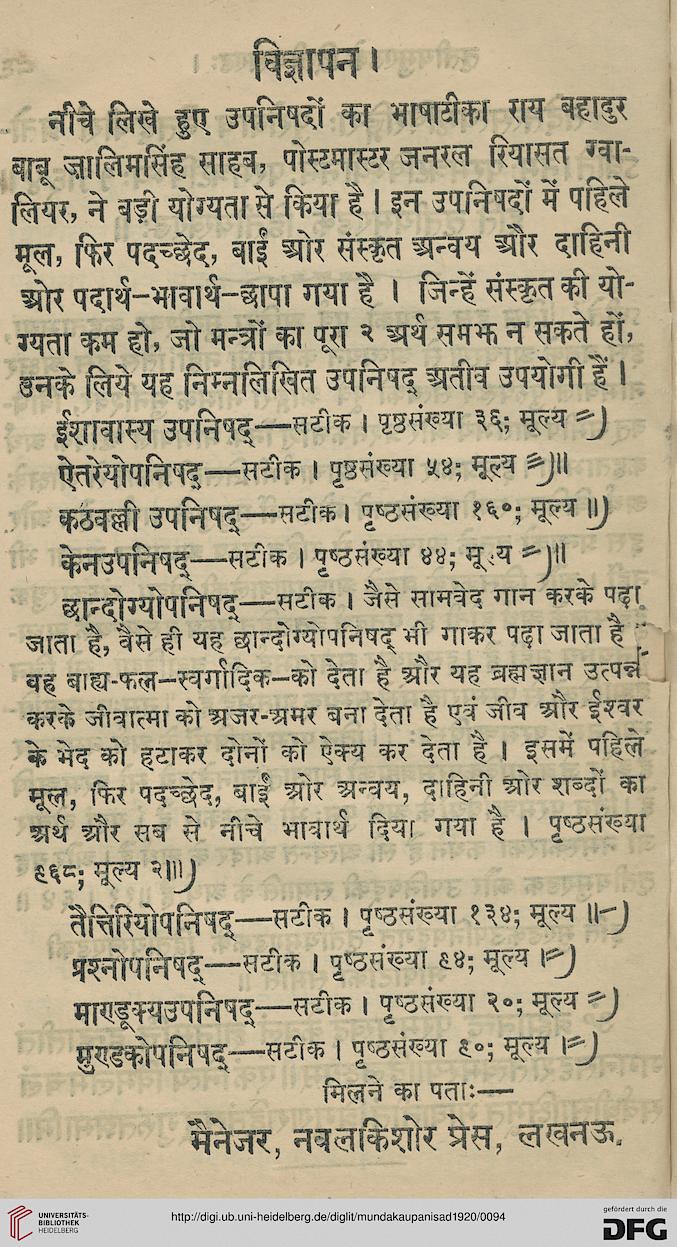 विज्ञापन ।
नीचे लिखे हुए उपनिषदों का भाषाटीका राय बहादुर
बाबू ज़ालिमसिंह साहब, पोस्टमास्टर जनरल रियासत ग्वा-
लियर, ने बड़ी योग्यता से किया है । इन उपनिषदों में पहिले
मूल, फिर पदच्छेद, बाईं ओर संस्कृत अन्वय और दाहिनी
ओर पदार्थ-भावार्थ-छापा गया है । जिन्हें संस्कृत की यो-
ग्यता कम हो, जो मन्त्रों का पूरा २ अर्थ समझ न सकते हों,
उनके लिये यह निम्नलिखित उपनिषद् अतीव उपयोगी हैं ।
ईशावास्य उपनिषद्—सटीक । पृष्ठसंख्या ३६; मूल्य =)
ऐतरेयोपनिषद्—सटीक । पृष्ठसंख्या ५४; मूल्य ≡)॥
कठवल्ली उपनिषद्—सटीक । पृष्ठसंख्या १६०; मूल्य ॥)
केनउपनिषद्—सटीक । पृष्ठसंख्या ४४; मू य =)॥
छान्दोग्योपनिषद्—सटीक । जैसे सामवेद गान करके पढ़ा
जाता है, वैसे ही यह छान्दोग्योपनिषद् भी गाकर पढ़ा जाता है
वह बाह्य-फल-स्वर्गादिक-को देता है और यह ब्रह्मज्ञान उत्पन्न
करके जीवात्मा को अजर-अमर बना देता है एवं जीव और ईश्वर
के भेद को हटाकर दोनों को ऐक्य कर देता है । इसमें पहिले
मूल, फिर पदच्छेद, बाईं ओर अन्वय, दाहिनी ओर शब्दों का
अर्थ और सब से नीचे भावार्थ दिया गया है । पृष्ठसंख्या
९६८; मूल्य २॥।)
तैत्तिरियोपनिषद्—सटीक । पृष्ठसंख्या १३४; मूल्य ॥-)
प्रश्नोपनिषद्—सटीक । पृष्ठसंख्या ९४; मूल्य ।=)
माण्डूक्यउपनिषद्—सटीक । पृष्ठसंख्या २०; मूल्य =)
मुण्डकोपनिषद्—सटीक । पृष्ठसंख्या ९०; मूल्य ।=)
मिलने का पताः—
मैनेजर, नवलकिशोर प्रेस, लखनऊ.
UNIVERSITÄTS-
BIBLIOTHEK
HEIDELBERG
http://digi.ub.uni-heidelberg.de/diglit/mundakaupanisad1920/0094
gefördert durch die
DFG